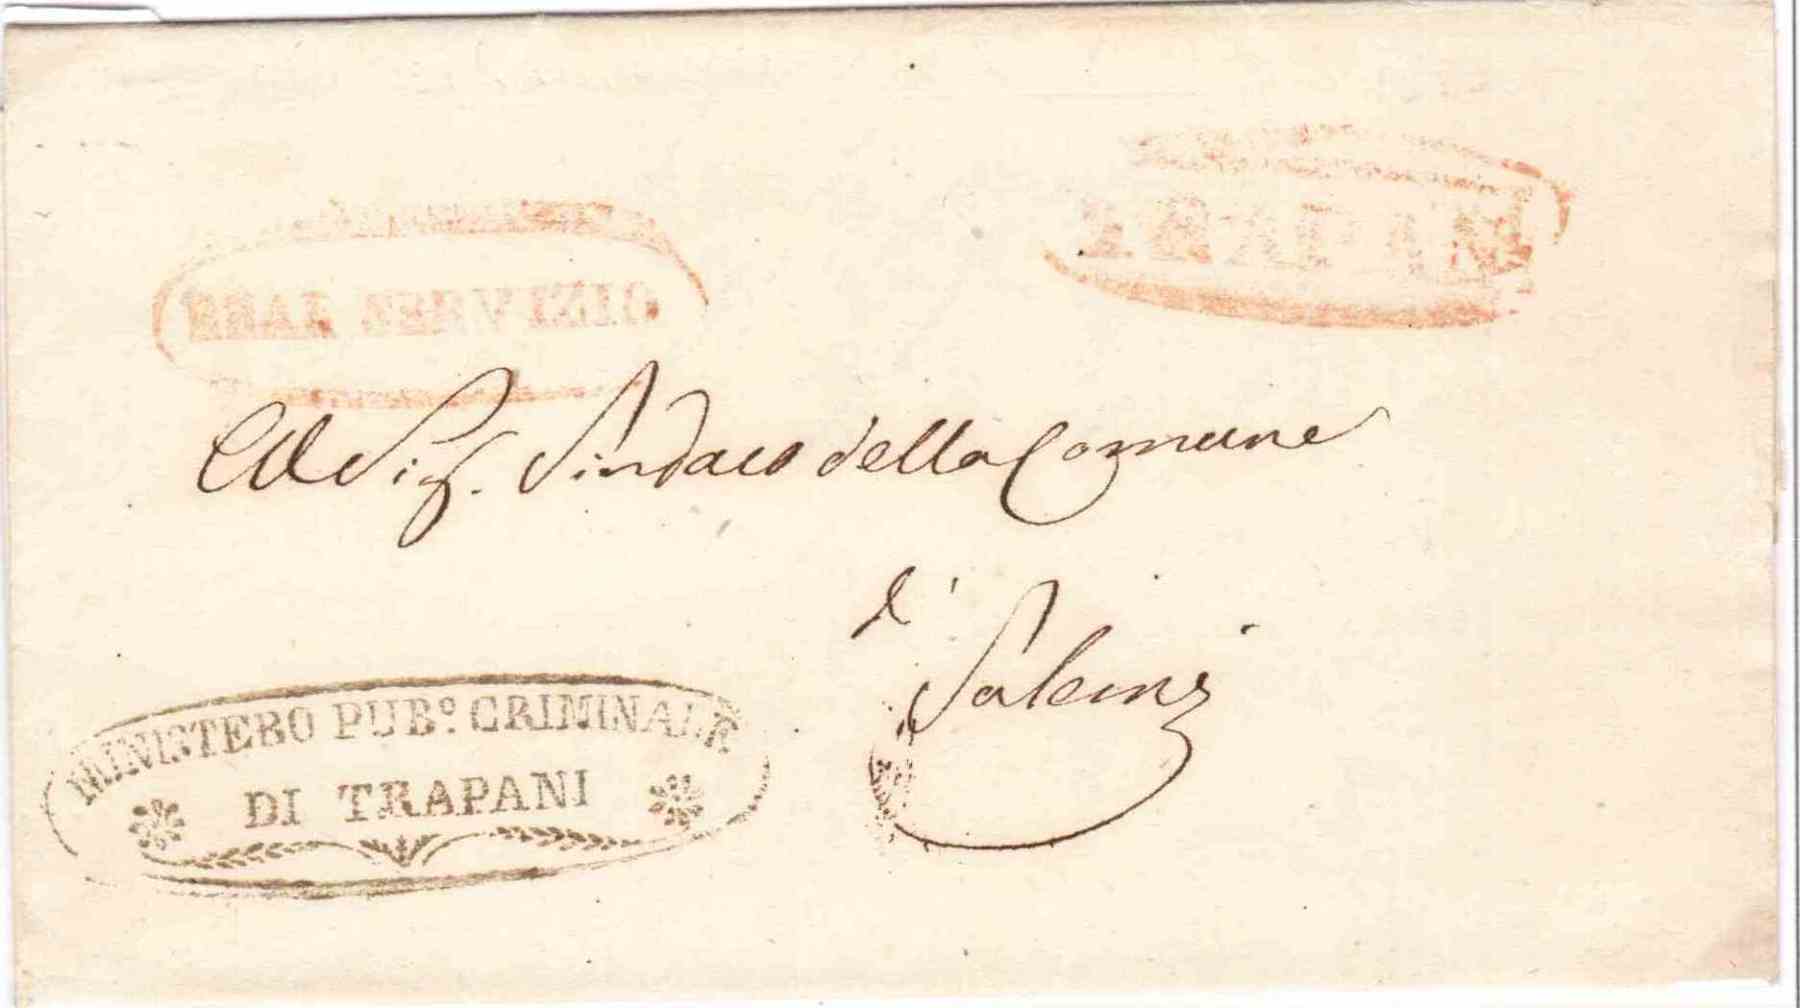 REAL SERVIZIO
TRAPANI
Al Sig. Sindaco della Comune
di
Salemi
MINISTERO PUBº. CRIMINALE
DI TRAPANI